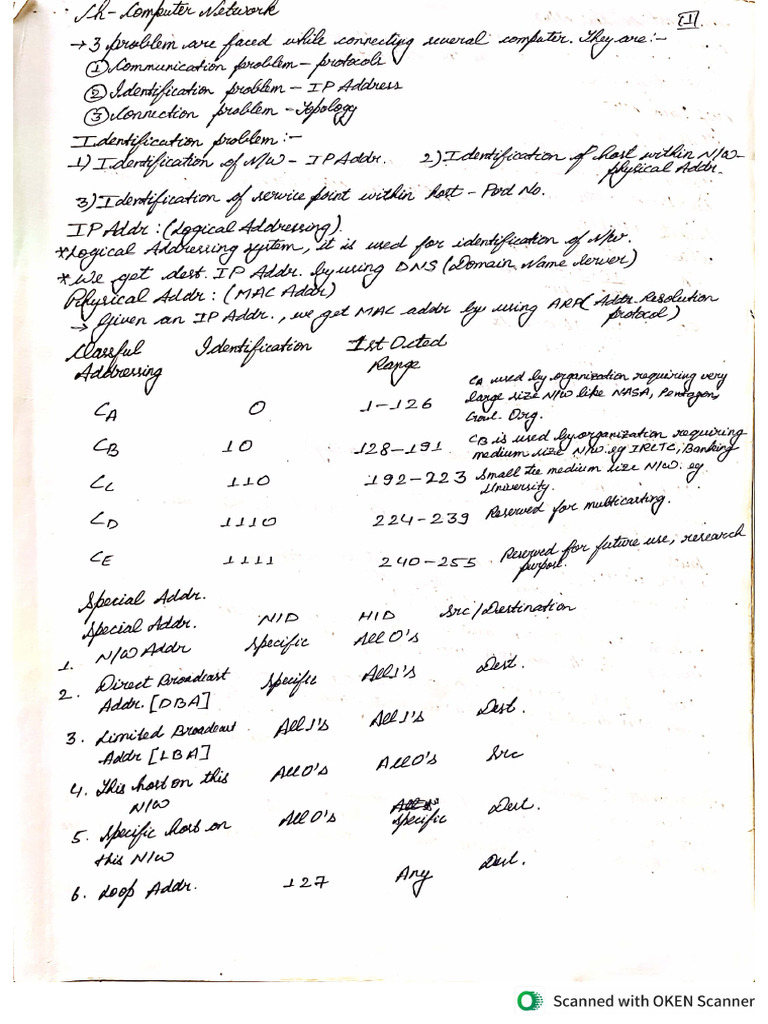 Ch- Computer Network
[1]
→ 3 problem are faced while connecting several computer. They are:-
① Communication problem - protocols
② Identification problem - IP Address
③ Connection problem - Topology
Identification problem :-
1) Identification of N/W - IP Addr. 2) Identification of host within N/W -
physical Addr.
3) Identification of service point within host - Port No.
IP Addr : (Logical Addressing).
*Logical Addressing system, it is used for identification of N/w.
*We get dest. IP Addr. by using DNS (Domain Name Server)
Physical Addr : (MAC Addr)
→ Given an IP Addr., we get MAC addr by using ARP (Addr. Resolution
protocol)
Classful Identification Ist Octed
Addressing Range
CA 0 1-126 CA used by organization requiring very
large size N/W like NASA, Pentagon,
Govt. Org.
CB 10 128-191 CB is used by organization requiring
medium size N/W. eg IRCTC, Banking
CC 110 192-223 Small to medium size N/W. eg
University.
CD 1110 224-239 Reserved for multicasting.
CE 1111 240-255 Reserved for future use, research
purpose.
Special Addr.
Special Addr. NID HID Src/Destination
1. N/W Addr Specific All 0's
2. Direct Broadcast Specific All 1's Dest.
Addr. [DBA]
3. Limited Broadcast All 1's All 1's Dest.
Addr [LBA]
4. This host on this All 0's All 0's Src
N/W
5. Specific host on All 0's Specific Dest.
this N/W
6. Loop Addr. 127 Any Dest.
Scanned with OKEN Scanner